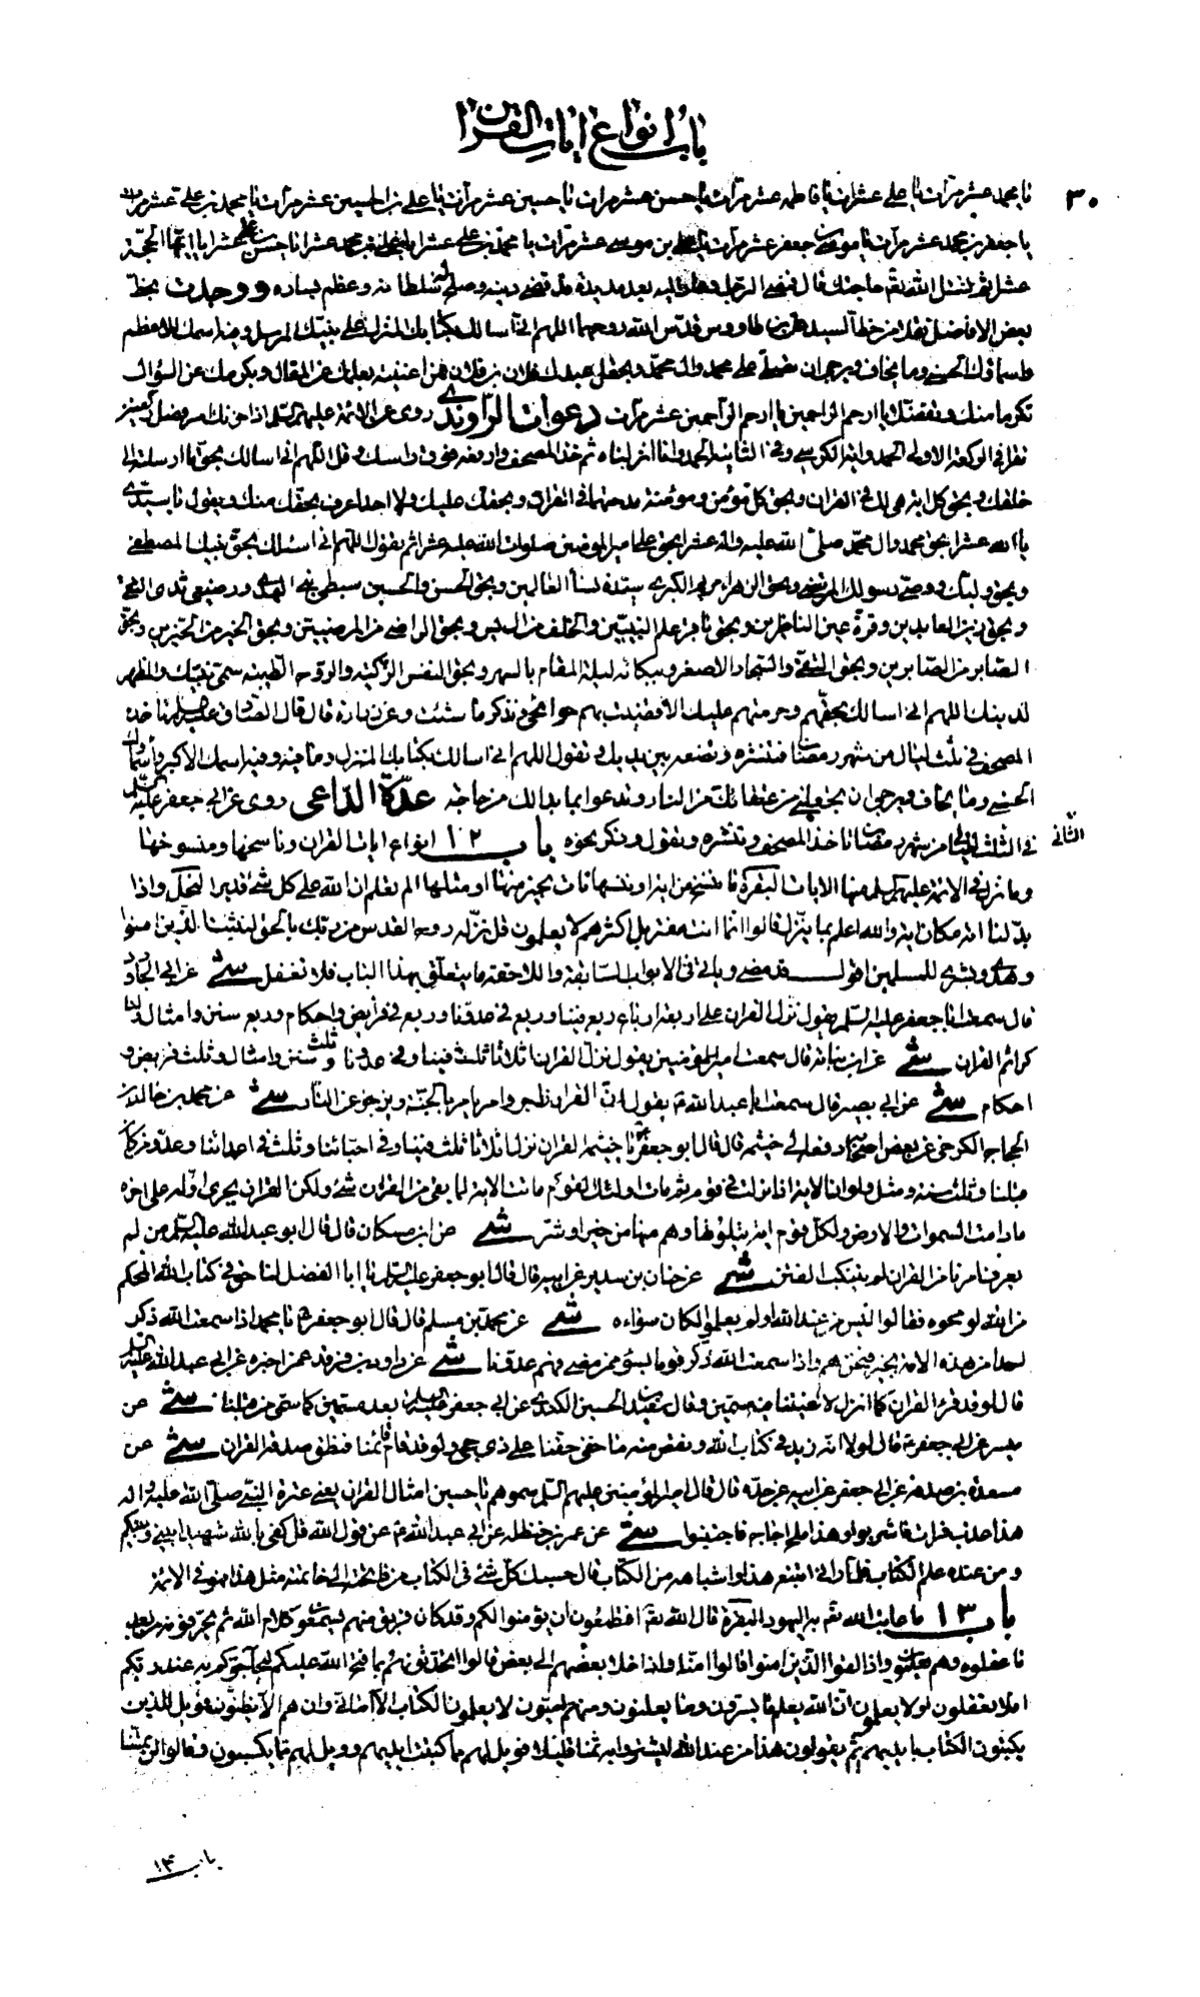 باب انواع ايات القران
٣٠
يا محمد عشر مرات يا على عشر مرات يا فاطمه عشر مرات يا حسن عشر مرات يا حسين عشر مرات يا على بن الحسين عشر مرات يا محمد بن على عشر مرات
يا جعفر بن محمد عشر مرات يا موسى بن جعفر عشر مرات يا على بن موسى عشر مرات يا محمد بن على عشرا يا على بن محمد عشرا يا حسن بن على عشرا يا ايها الحجة
عشرا ثم تسئل الله تع حاجتك قال فمضى الرجل وعاد اليه بعد مديدة قد قضى دينه وصلح له سلطانه وعظم يساره ووجدت بخط
بعض الافاضل نقلا من خط السيد على بن طاووس قدس الله روحهما اللهم انى اسالك بكتابك المنزل على نبيك المرسل وفيه اسمك الاعظم
واسماؤك الحسنى وما يخاف ويرجى ان تصلى على محمد وال محمد وتجعل عبدك فلان بن فلان ممن اغنيته بعلمك عن المقال وبكرمك عن السؤال
تكرما منك وتفضلا يا ارحم الراحمين يا ارحم الراحمين عشر مرات دعوات الراوندى روى عن الائمة عليهم السلم اذا حزنك امر فصل ركعتين
تقرا فى الركعة الاولى الحمد واية الكرسى وفى الثانية الحمد وانا انزلناه ثم خذ المصحف وارفعه فوق راسك وقل اللهم انى اسالك بحق ما ارسلته الى
خلقك وبحق كل اية هى لك فى القران وبحق كل مؤمن ومؤمنة مدحتهما فى القران وبحقك عليك ولا احد اعرف بحقك منك وتقول يا سيدى
يا الله عشرا بحق محمد وال محمد صلى الله عليه واله عشرا بحق على امير المؤمنين صلوات الله عليه عشرا ثم تقول اللهم انى اسئلك بحق نبيك المصطفى
وبحق وليك ووصى رسولك المرتضى وبحق الزهراء مريم الكبرى سيدة نساء العالمين وبحق الحسن والحسين سبطى نبى الهدى ورضيعى ثدى التقى
وبحق زين العابدين وقرة عين الناظرين وبحق باقر علم النبيين والخلف من ال يس وبحق الراضى من المرضيين وبحق الخير من الخيرين وبحق
الصابر من الصابرين وبحق التقى والسجاد الاصغر وببكائه ليلة المقام بالسهر وبحق النفس الزكية والروح الطيبة سمى نبيك والمظهر
لدينك اللهم انى اسالك بحقهم وحرمتهم عليك الا قضيت بهم حوائجى وتذكر ما شئت وعن زرارة قال قال الصادق عليه السلم تاخذ
المصحف فى ثلث ليال من شهر رمضان فتنشره وتضعه بين يديك وتقول اللهم انى اسالك بكتابك المنزل وما فيه وفيه اسمك الاكبر واسماؤك
الحسنى وما يخاف ويرجى ان تجعلنى من عتقائك من النار وتدعو بما بدا لك من حاجة عدة الداعى روى عن ابى جعفر عليه السلم
الثانى
فى الثلث الثانى من شهر رمضان تاخذ المصحف وتنشره وتقول وذكر نحوه باب ١٢ انواع ايات القران وناسخها ومنسوخها
وما نزل فى الائمة عليهم السلم منها الايات البقرة ما ننسخ من اية او ننسها نات بخير منها او مثلها الم تعلم ان الله على كل شئ قدير النحل واذا
بدلنا اية مكان اية والله اعلم بما ينزل قالوا انما انت مفتر بل اكثرهم لا يعلمون قل نزله روح القدس من ربك بالحق ليثبت الذين امنوا
وهدى وبشرى للمسلمين اقول قد مضى وياتى فى الابواب السابقة واللاحقة ما يتعلق بهذا الباب فلا تغفل شى عن ابى الجارود
قال سمعت ابا جعفر عليه السلم يقول نزل القران على اربعة ارباع ربع فينا وربع فى عدونا وربع فى فرايض واحكام وربع سنن وامثال ولنا
كرائم القران شى عن ابن نباته قال سمعت امير المؤمنين يقول نزل القران اثلاثا ثلث فينا وفى عدونا وثلث سنن وامثال وثلث فرايض و
احكام شى عن ابى بصير قال سمعت ابا عبد الله ع يقول ان القران زاجر وامر يامر بالجنة ويزجر عن النار شى عن محمد بن خالد بن
الحجاج الكرخى عن بعض اصحابه رفعه الى خيثمه قال قال ابو جعفر يا خيثمة القران نزل اثلاثا ثلث فينا وفى احبائنا وثلث فى اعدائنا وعدو من كان
قبلنا وثلث سنة ومثل ولو ان الاية اذا نزلت فى قوم ثم مات اولئك القوم ماتت الاية لما بقى من القران شئ ولكن القران يجرى اوله على اخره
ما دامت السموات والارض ولكل قوم اية يتلونها وهم منها من خير او شر شى عن ابن مسكان قال قال ابو عبد الله عليه السلم من لم
يعرف امرنا من القران لم يتنكب الفتن شى عن حنان بن سدير عن ابيه قال قال ابو جعفر عليه السلم يا ابا الفضل لنا حق فى كتاب الله المحكم
من الله لو محوه فقالوا ليس من عند الله او لم يعلموا لكان سواء شى عن محمد بن مسلم قال قال ابو جعفر ع يا محمد اذا سمعت الله ذكر
احدا من هذه الامة بخير فنحن هم واذا سمعت الله ذكر قوما بسوء ممن مضى فهم عدونا شى عن داود بن فرقد عمن اخبره عن ابى عبد الله عليه السلم
قال لو قد قرئ القران كما انزل لالفيتنا فيه مسمين وقال سعيد بن الحسين الكندى عن ابى جعفر عليه السلم بعد مسمين كما سمى من قبلنا شى عن
ميسر عن ابى جعفر ع قال لولا انه زيد فى كتاب الله ونقص منه ما خفى حقنا على ذى حجى ولو قد قام قائمنا فنطق صدقه القران شى عن
مسعدة بن صدقه عن ابى جعفر عن ابيه عن جده قال قال امير المؤمنين عليهم السلم سموهم باحسن امثال القران يعنى عترة النبى صلى الله عليه واله
هذا عذب فرات فاشربوا وهذا ملح اجاج فاجتنبوا شى عن عمر بن حنظله عن ابى عبد الله ع عن قول الله قل كفى بالله شهيدا بينى وبينكم
ومن عنده علم الكتاب فلما رانى اتتبع هذا واشباهه من الكتاب قال حسبك كل شئ فى الكتاب من فاتحته الى خاتمته مثل هذا فهو فى الائمة
باب ١٣ ما عاتب الله تع به اليهود البقرة قال الله تع افتطمعون ان يؤمنوا لكم وقد كان فريق منهم يسمعون كلام الله ثم يحرفونه من بعد
ما عقلوه وهم يعلمون واذا لقوا الذين امنوا قالوا امنا واذا خلا بعضهم الى بعض قالوا اتحدثونهم بما فتح الله عليكم ليحاجوكم به عند ربكم
افلا تعقلون اولا يعلمون ان الله يعلم ما يسرون وما يعلنون ومنهم اميون لا يعلمون الكتاب الا امانى وان هم الا يظنون فويل للذين
يكتبون الكتاب بايديهم ثم يقولون هذا من عند الله ليشتروا به ثمنا قليلا فويل لهم مما كتبت ايديهم وويل لهم مما يكسبون وقالوا لن تمسنا
باب ١٣